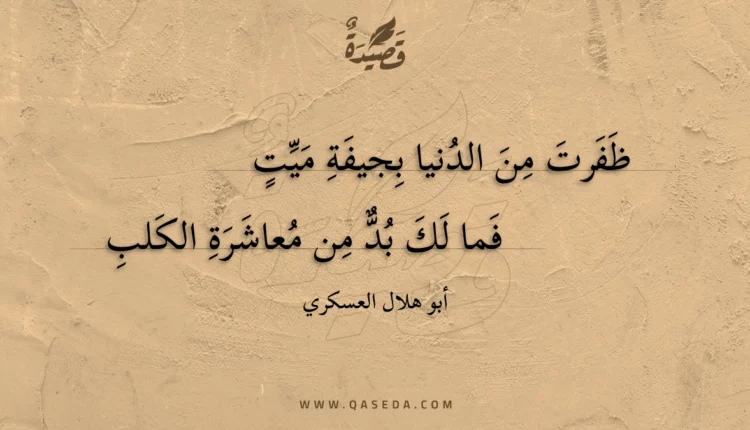 قَصِيدَةٌ
ظَفَرتَ مِنَ الدُنيا بِجيفَةِ مَيِّتٍ
فَما لَكَ بُدٌّ مِن مُعاشَرَةِ الكَلبِ
أبو هلال العسكري
WWW.QASEDA.COM